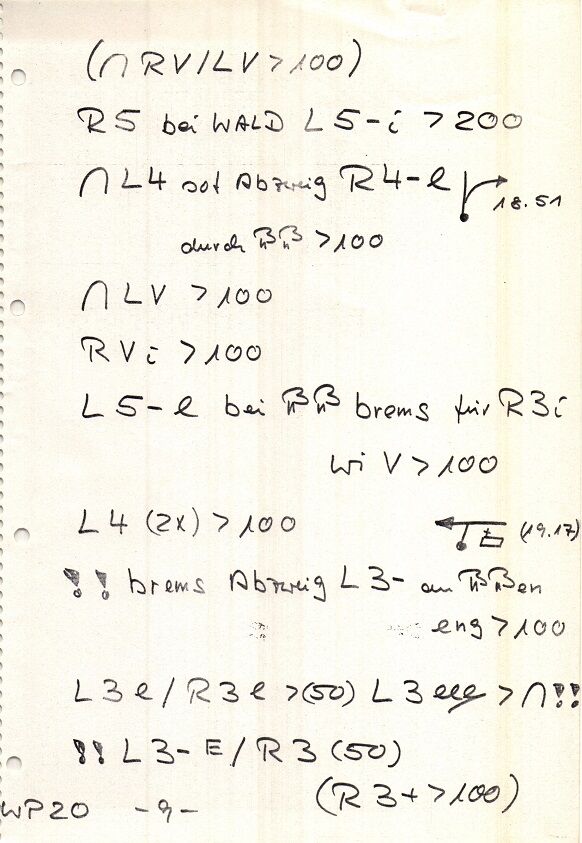 (∩ RV/LV > 100)
R5 bei WALD L5-i > 200
∩ L4 Abzweig R4-l 18.51
durch > 100
∩ LV > 100
RVi > 100
L5-l bei brems für R3i
wi V > 100
L4 (2x) > 100 (19.17)
!! brems Abzweig L3- am en
eng > 100
L3l/R3l > (50) L3lll > ∩ !!
!! L3-E/R3 (50)
(R3+ > 100)
WP20 -9-